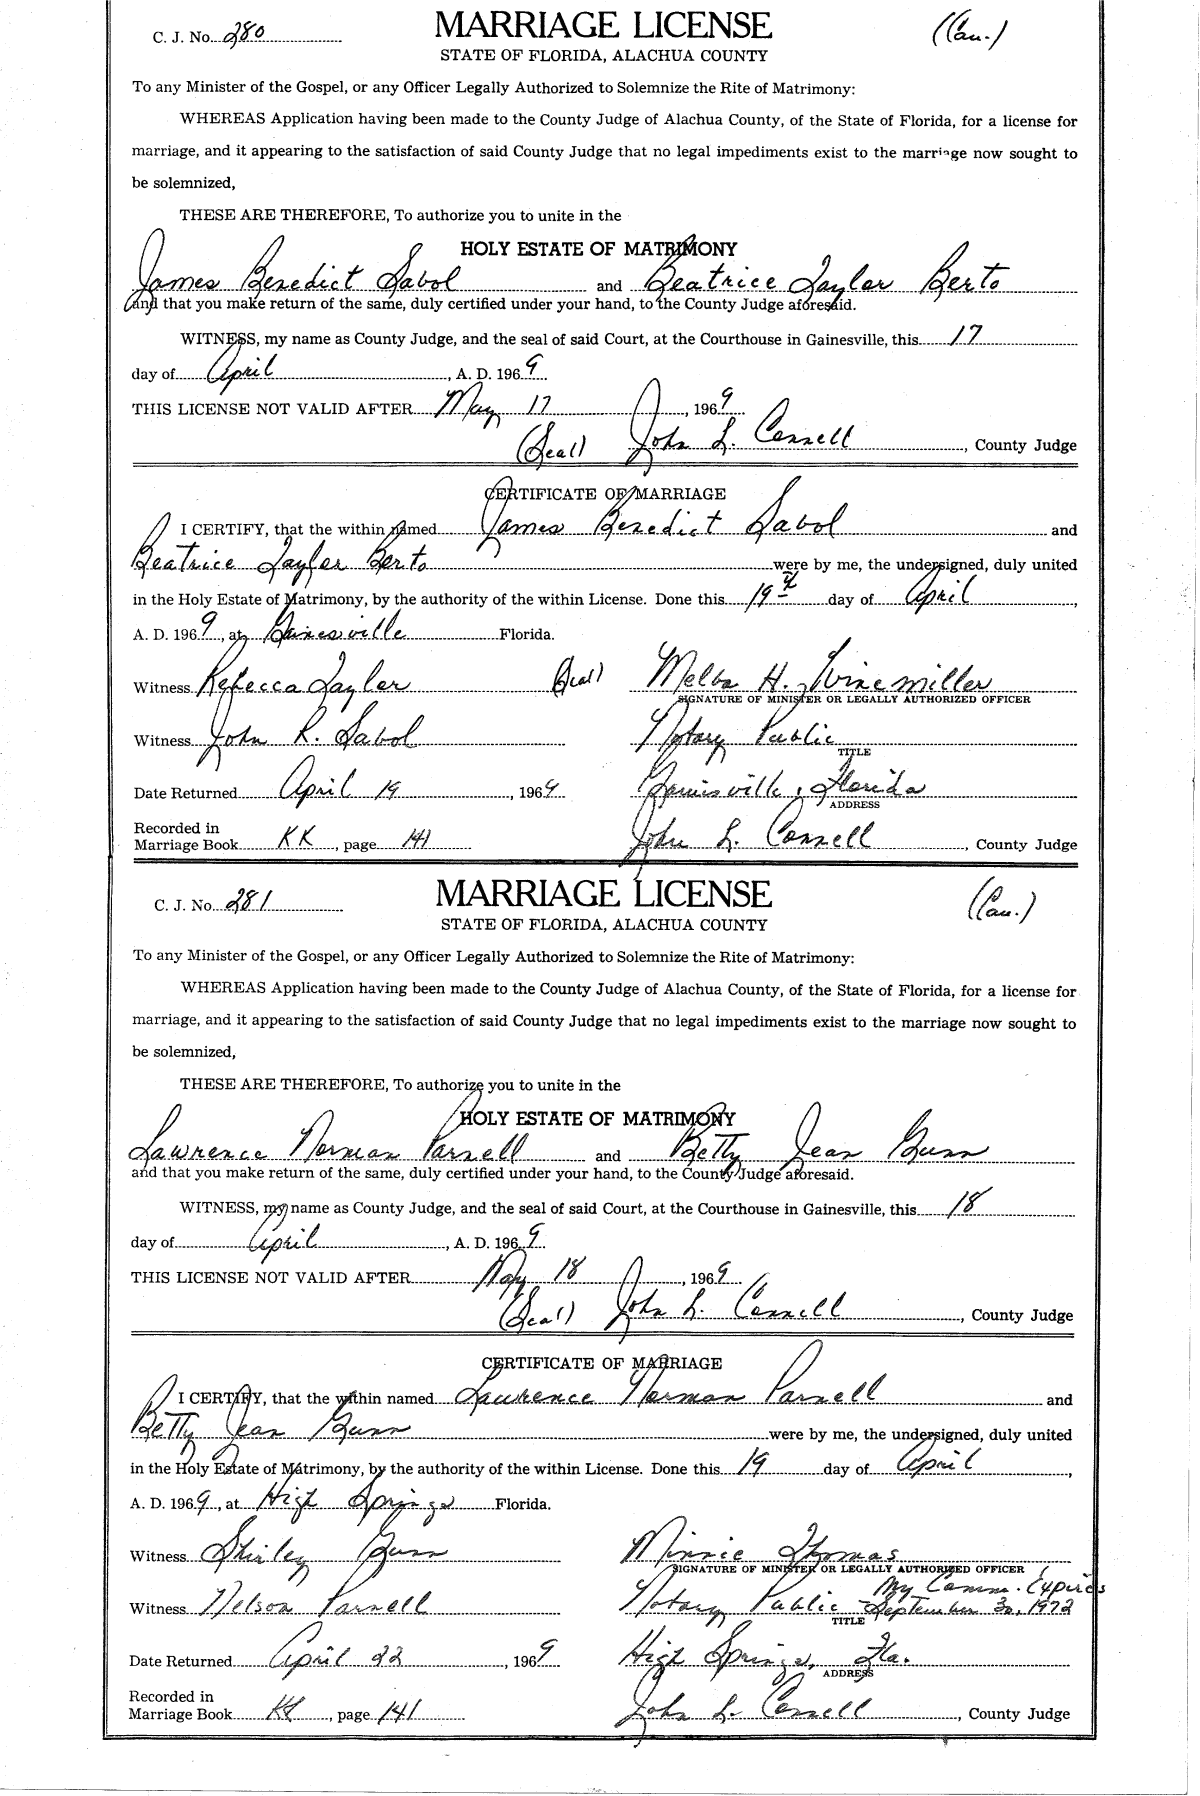 C. J. No. 280 MARRIAGE LICENSE (Cau.)
STATE OF FLORIDA, ALACHUA COUNTY
To any Minister of the Gospel, or any Officer Legally Authorized to Solemnize the Rite of Matrimony:
WHEREAS Application having been made to the County Judge of Alachua County, of the State of Florida, for a license for
marriage, and it appearing to the satisfaction of said County Judge that no legal impediments exist to the marriage now sought to
be solemnized,
THESE ARE THEREFORE, To authorize you to unite in the
HOLY ESTATE OF MATRIMONY
James Benedict Sabol and Beatrice Taylor Berto
and that you make return of the same, duly certified under your hand, to the County Judge aforesaid.
WITNESS, my name as County Judge, and the seal of said Court, at the Courthouse in Gainesville, this 17
day of April, A. D. 1969
THIS LICENSE NOT VALID AFTER May 17, 1969
(Seal) John L. Connell, County Judge
CERTIFICATE OF MARRIAGE
I CERTIFY, that the within named James Benedict Sabol and
Beatrice Taylor Berto were by me, the undersigned, duly united
in the Holy Estate of Matrimony, by the authority of the within License. Done this 19 day of April,
A. D. 1969, at Gainesville Florida.
Witness Rebecca Taylor (Seal) Melba H. Winemiller
SIGNATURE OF MINISTER OR LEGALLY AUTHORIZED OFFICER
Witness John R. Sabol Notary Public
TITLE
Date Returned April 19, 1969 Gainesville, Florida
ADDRESS
Recorded in
Marriage Book KK, page 141 John L. Connell, County Judge
C. J. No. 281 MARRIAGE LICENSE (Cau.)
STATE OF FLORIDA, ALACHUA COUNTY
To any Minister of the Gospel, or any Officer Legally Authorized to Solemnize the Rite of Matrimony:
WHEREAS Application having been made to the County Judge of Alachua County, of the State of Florida, for a license for
marriage, and it appearing to the satisfaction of said County Judge that no legal impediments exist to the marriage now sought to
be solemnized,
THESE ARE THEREFORE, To authorize you to unite in the
HOLY ESTATE OF MATRIMONY
Lawrence Norman Parnell and Betty Jean Gunn
and that you make return of the same, duly certified under your hand, to the County Judge aforesaid.
WITNESS, my name as County Judge, and the seal of said Court, at the Courthouse in Gainesville, this 18
day of April, A. D. 1969
THIS LICENSE NOT VALID AFTER May 18, 1969
(Seal) John L. Connell, County Judge
CERTIFICATE OF MARRIAGE
I CERTIFY, that the within named Lawrence Norman Parnell and
Betty Jean Gunn were by me, the undersigned, duly united
in the Holy Estate of Matrimony, by the authority of the within License. Done this 19 day of April,
A. D. 1969, at High Springs Florida.
Witness Shirley Gunn Minnie Thomas
SIGNATURE OF MINISTER OR LEGALLY AUTHORIZED OFFICER
My Comm. Expires
Witness Nelson Parnell Notary Public - September 30, 1972
TITLE
Date Returned April 22, 1969 High Springs, Fla.
ADDRESS
Recorded in
Marriage Book KK, page 141 John L. Connell, County Judge